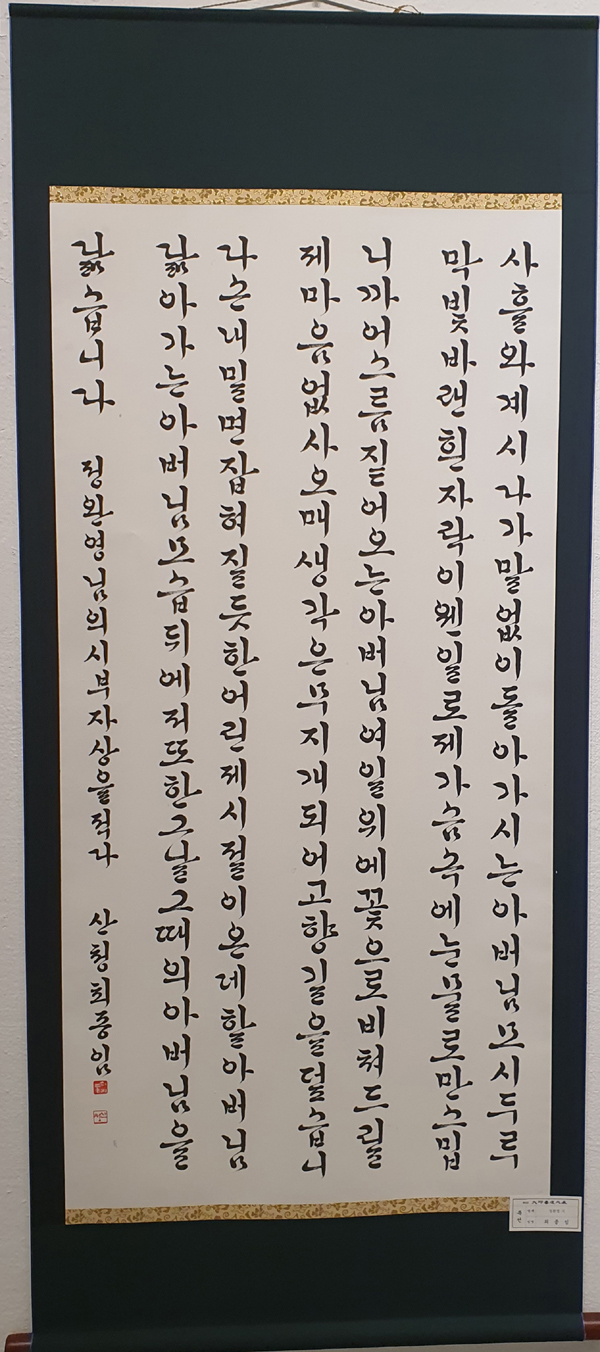 사흘와계시다가말없이돌아가시는아버님모시두루
막빛바랜흰자락이웬일로제가슴속에눈물로만스밉
니까어스름짙어오는아버님여일위에꽃으로비쳐드릴
제마음없사오매생각은무지개되어고향길을덮습니
다손내밀면잡혀질듯한어린제시절이온데할아버님
닮아가는아버님모습뒤에저또한그날그때의아버님을
닮습니다 정완영님의시부자상을적다 산청최종임